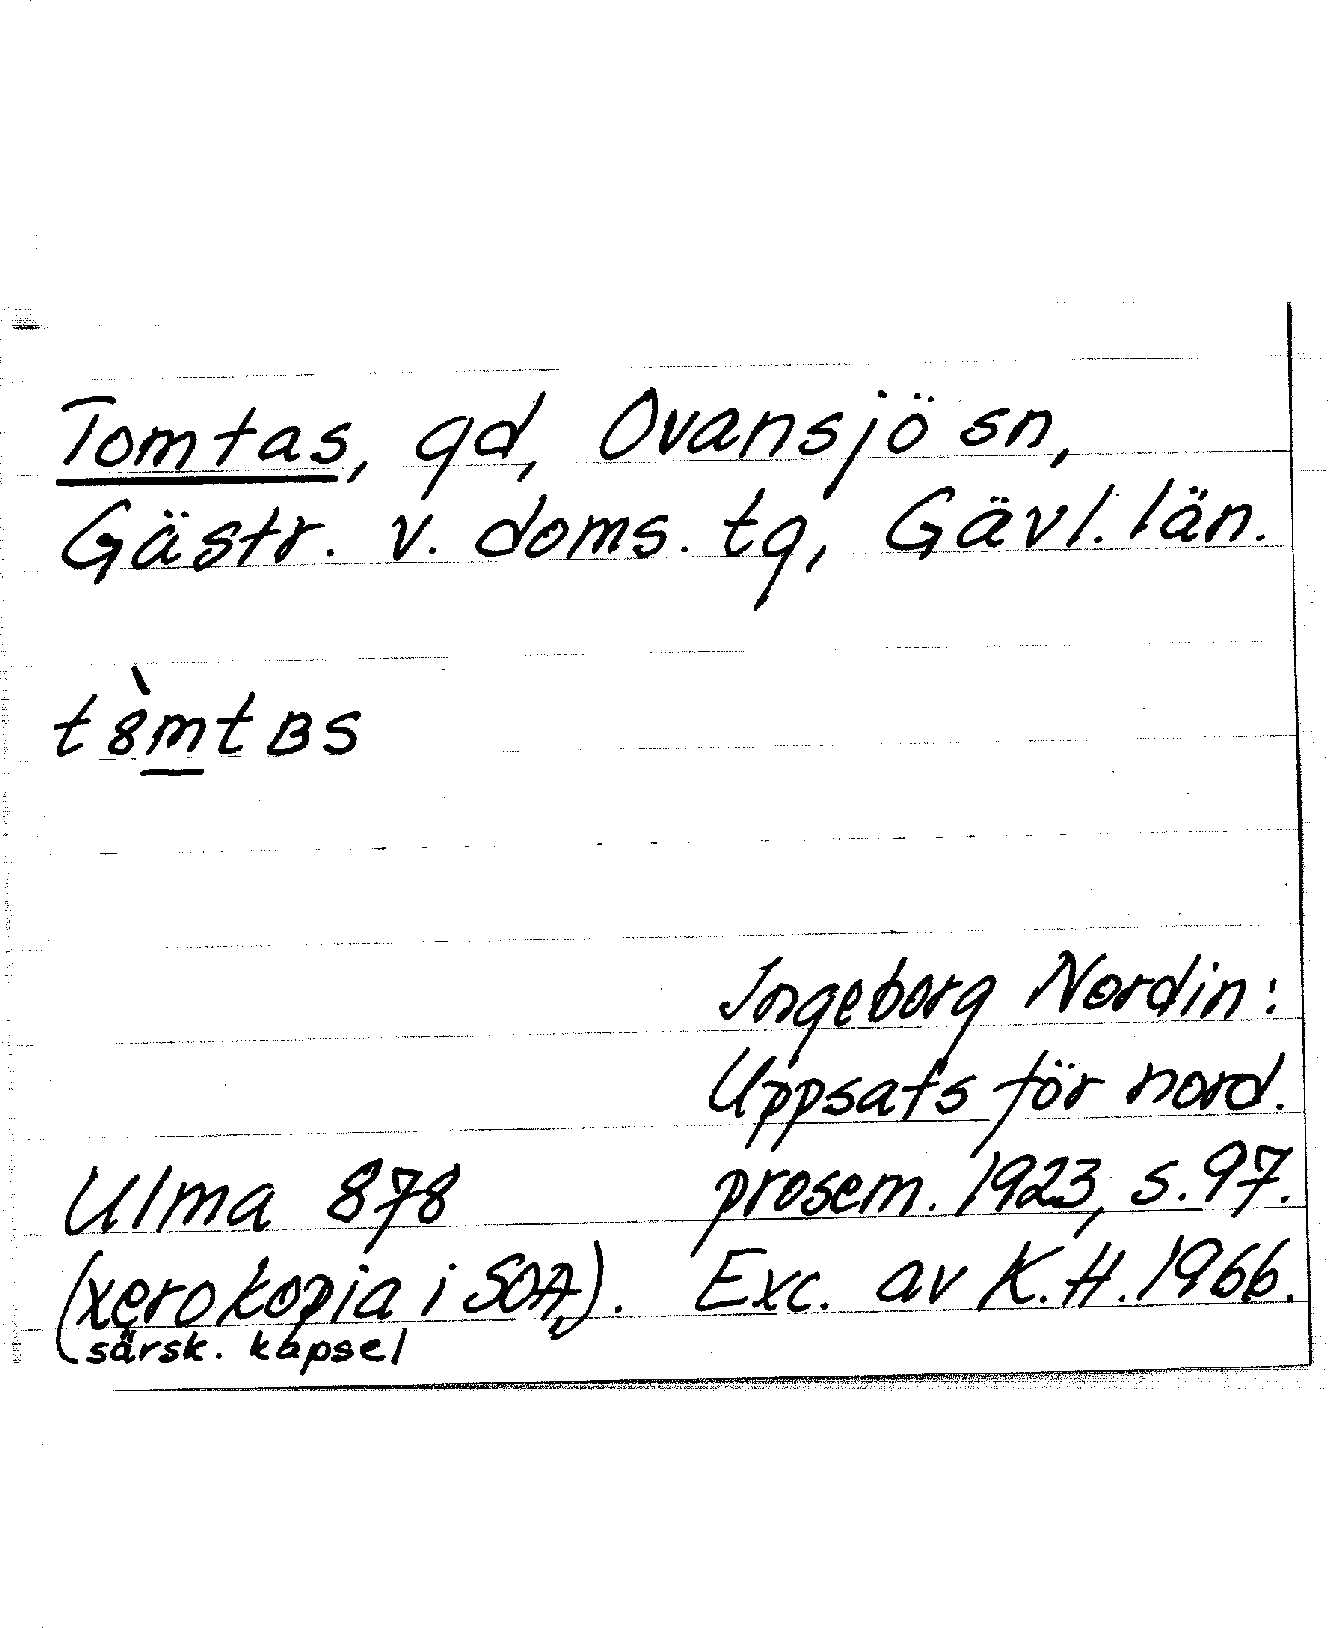 Tomtas, gd, Ovansjö sn,
Gästr. v. doms. tg, Gävl. län.
t8̀m̲tBS
Ingeborg Nordin:
Uppsats för nord.
Ulma 878 prosem. 1923, s. 97.
(xerokopia i SOA). Exc. av K. H. 1966.
särsk. kapsel